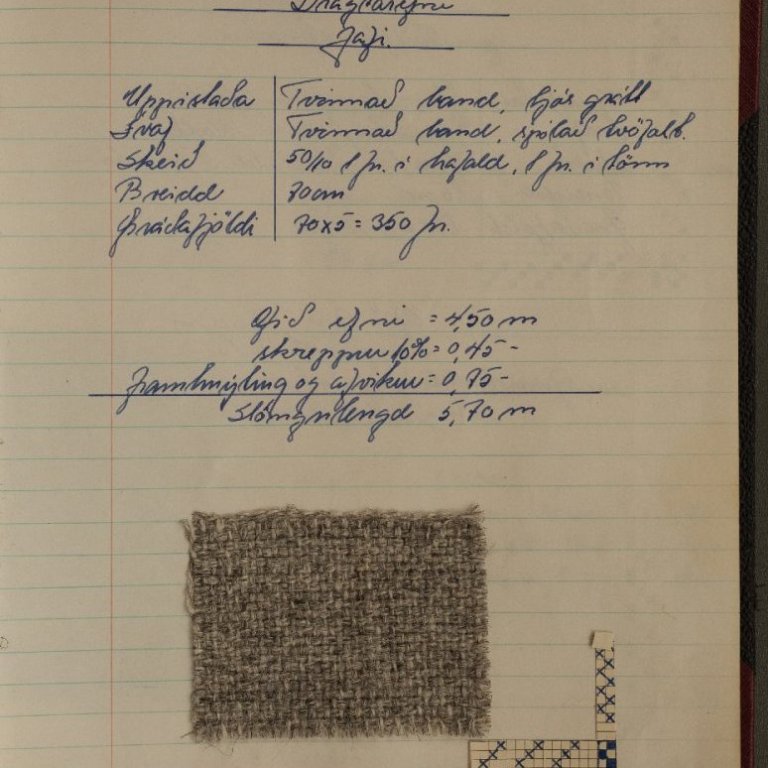 Dragtarefni
Jafi.
Uppistaða Tvinnað band, ljós grátt
Ívaf Tvinnað band, spólað tvöfalt.
Skeið 50/10 1 þr. í hafald, 1 þr. í tönn
Breidd 70cm
Þráðafjöldi 70x5 = 350 þr.
efni = 4,50 m
skreppur 10% = 0,45 -
og afvikur = 0,75 -
Slöngulengd 5,70 m